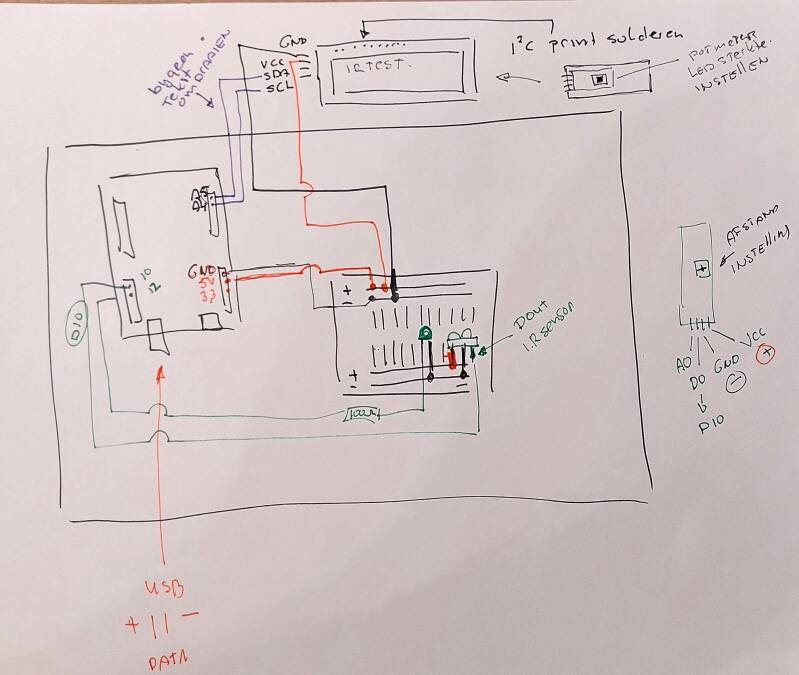 GND
VCC
SDA
SCL
IRTEST.
I²C print solderen
POTMETER
LED STERKTE.
INSTELLEN
by geen
Tekst
OMDRAAIEN
A5
A4
GND
5V
3,3
10
12
D10
+
-
+
-
DOUT
I.R sensor
100Ω
AFSTAND
INSTELLING
AO
DO
GND
VCC
-
+
D10
USB
+ || -
DATA